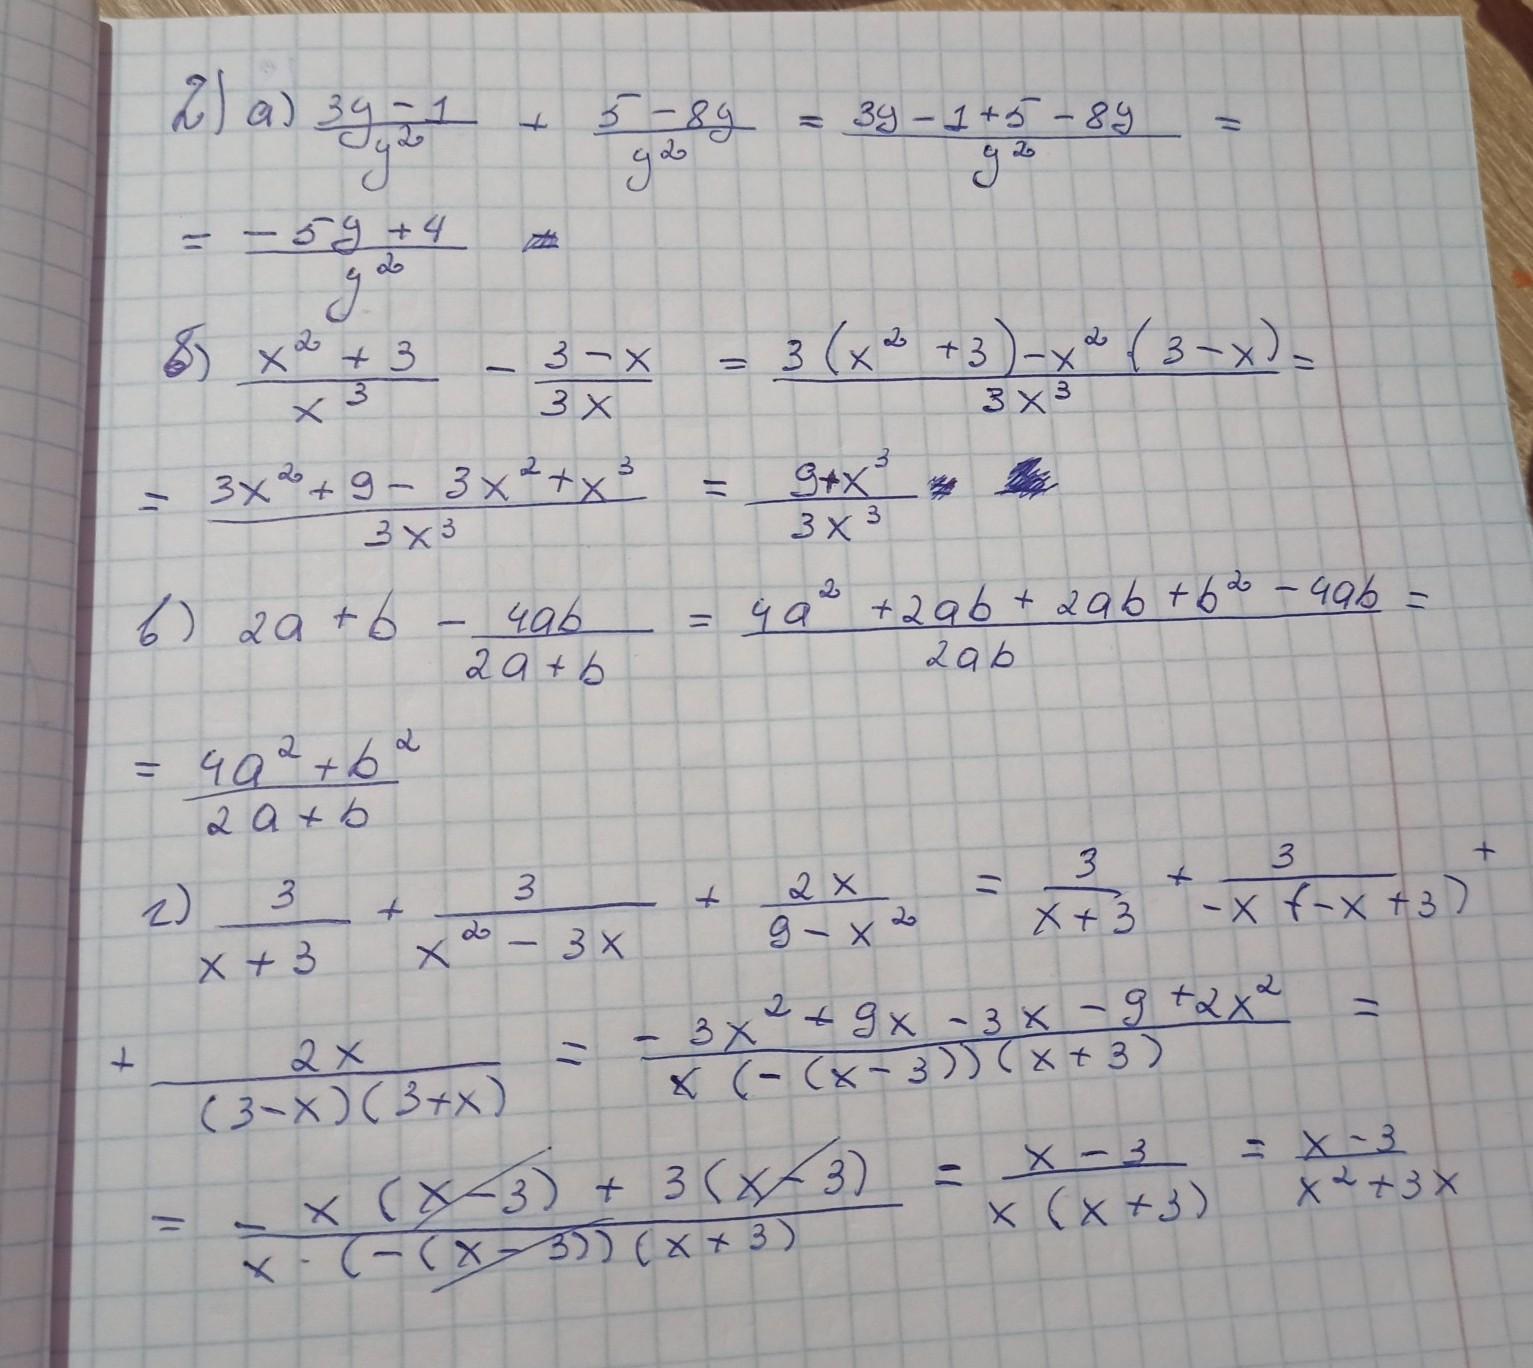 2) а) (3y-1)/y² + (5-8y)/y² = (3y-1+5-8y)/y² =
= (-5y+4)/y²
б) (x²+3)/x³ - (3-x)/3x = (3(x²+3)-x²(3-x))/3x³ =
= (3x²+9-3x²+x³)/3x³ = (9+x³)/3x³
в) 2a+b - 4ab/(2a+b) = (4a²+2ab+2ab+b²-4ab)/2ab =
= (4a²+b²)/(2a+b)
г) 3/(x+3) + 3/(x²-3x) + 2x/(9-x²) = 3/(x+3) + 3/(-x(-x+3)) +
+ 2x/((3-x)(3+x)) = (-3x²+9x-3x-9+2x²)/(x(-(x-3))(x+3)) =
= (-x(x-3)+3(x-3))/(x·(-(x-3))(x+3)) = (x-3)/(x(x+3)) = (x-3)/(x²+3x)